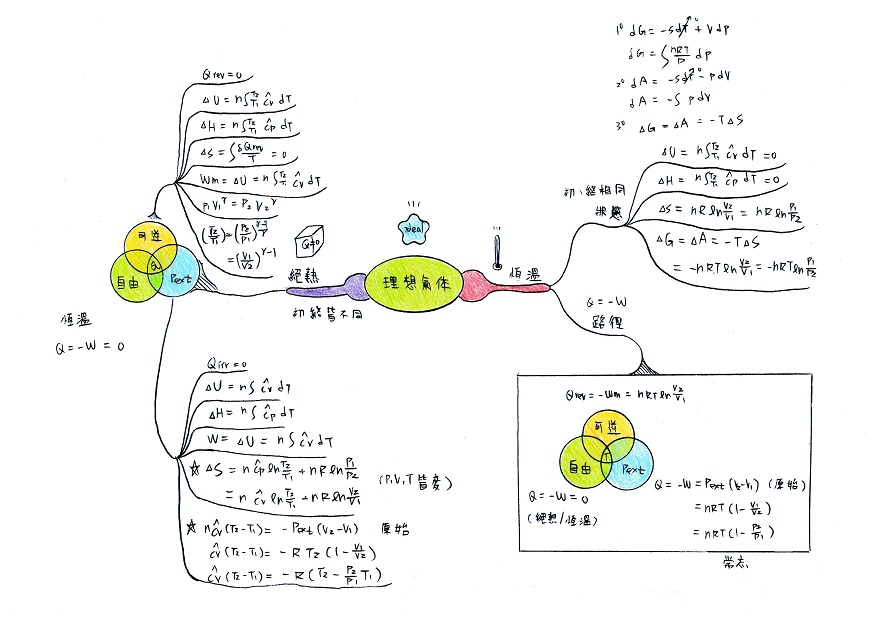 1° dG = -SdT⁰ + Vdp
dG = ∫ nRT/P dp
2° dA = -SdT⁰ - PdV
dA = -∫ pdV
3° ΔG = ΔA = -TΔS
Qrev = 0
ΔU = n∫T2 T1 ĉv dT
ΔH = n∫T2 T1 ĉp dT
ΔS = ∫ δQrev/T = 0
Wm = ΔU = n∫T2 T1 ĉv dT
P1V1^γ = P2V2^γ
(T2/T1) = (P2/P1)^(γ-1/γ)
= (V1/V2)^γ-1
可逆
自由
Q
Pext
恆溫
Q = -W = 0
Q=0
絕熱
初終皆不同
ideal
理想氣体
恆溫
初、終相同
狀態
ΔU = n∫T2 T1 ĉv dT = 0
ΔH = n∫T2 T1 ĉp dT = 0
ΔS = nR ln V2/V1 = nR ln P1/P2
ΔG = ΔA = -TΔS
= -nRT ln V2/V1 = -nRT ln P1/P2
Q = -W
路徑
Qirr = 0
ΔU = n∫ ĉv dT
ΔH = n∫ ĉp dT
W = ΔU = n∫ ĉv dT
☆ ΔS = n ĉp ln T2/T1 + nR ln P1/P2
= n ĉv ln T2/T1 + nR ln V2/V1
(P,V,T 皆變)
☆ nĉv (T2-T1) = -Pext (V2-V1) 原始
ĉv (T2-T1) = -R T2 (1 - V1/V2)
ĉv (T2-T1) = -R (T2 - P2/P1 T1)
Qrev = -Wm = nRT ln V2/V1
可逆
自由
T
Pext
Q = -W = 0
(絕熱/恆溫)
Q = -W = Pext (V2-V1) (原始)
= nRT (1 - V1/V2)
= nRT (1 - P2/P1)